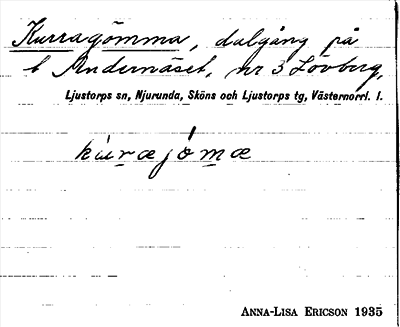 Kurragömma, dalgång på
t Andernäset, nr 3 Lövberg,
Ljustorps sn, Njurunda, Sköns och Ljustorps tg, Västernorrl. l.
kuræjömæ
ANNA-LISA ERICSON 1935